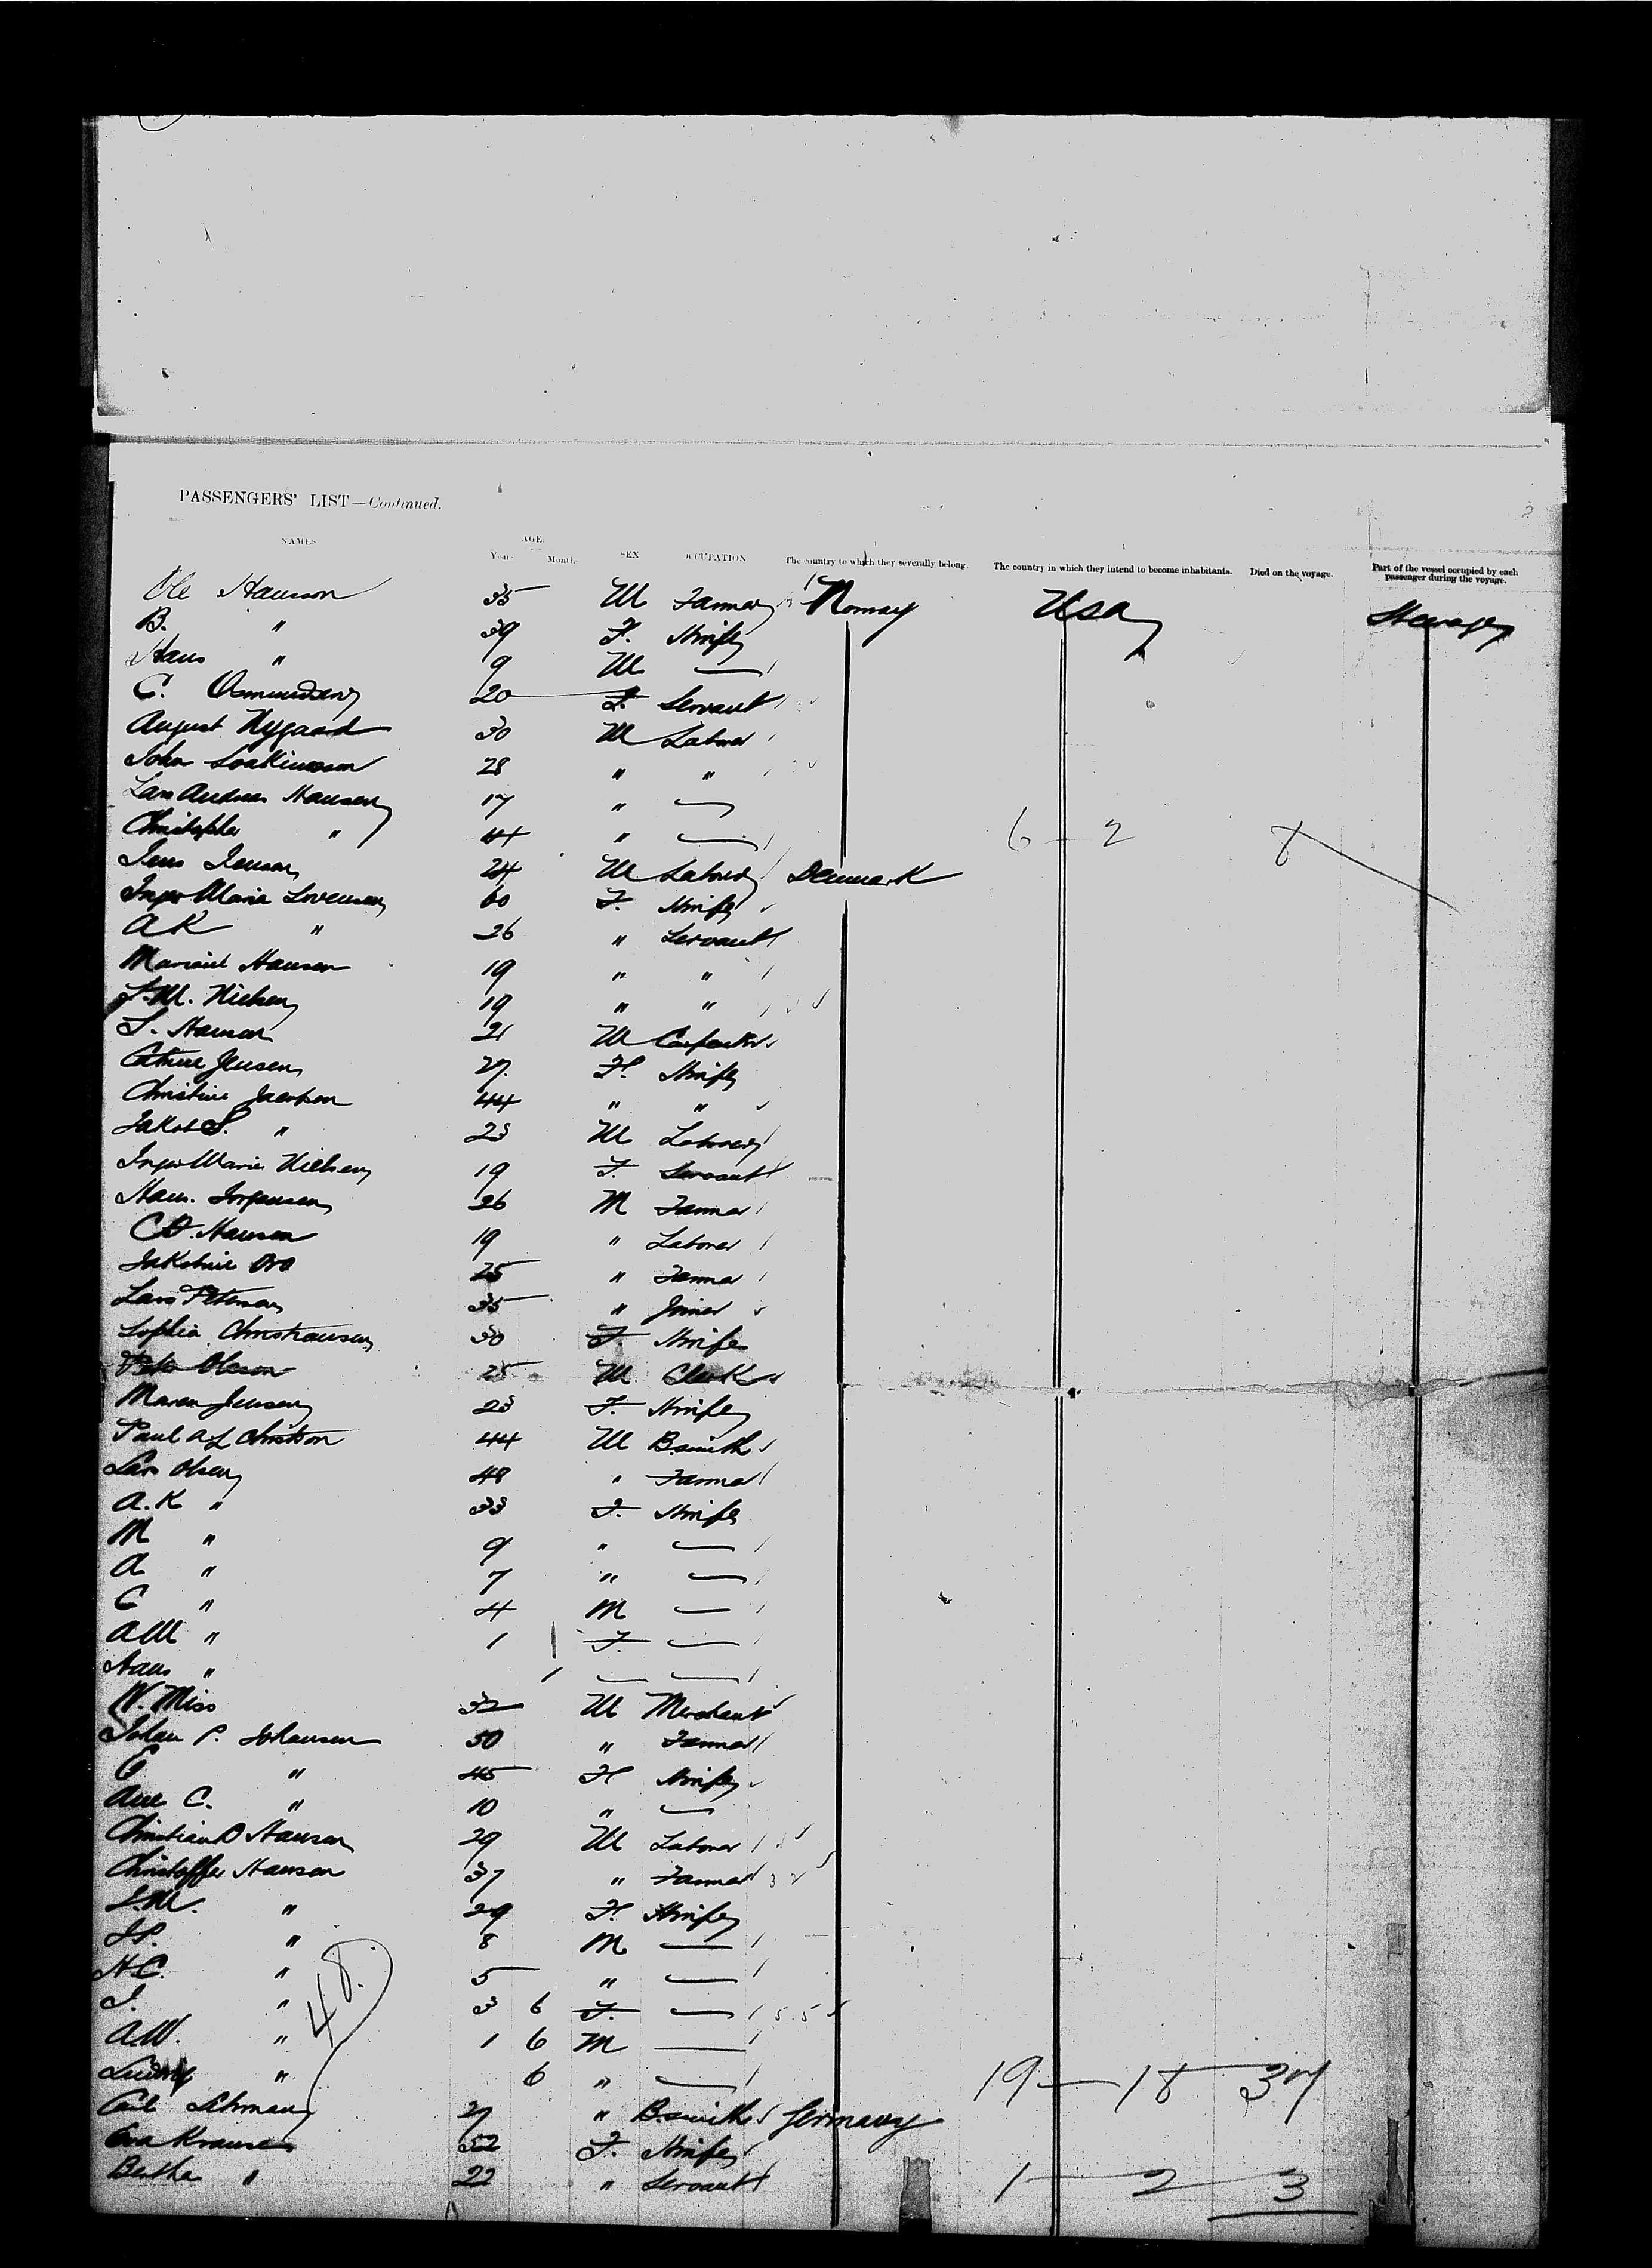 PASSENGERS' LIST—Continued.
NAMES AGE. Years Months SEX OCCUPATION The country to which they severally belong. The country in which they intend to become inhabitants. Died on the voyage. Part of the vessel occupied by each passenger during the voyage.
Ole Hansson 35 M Farmer Norway USA Steerage
B. " 39 F. Wife
Hans " 9 M —
C. Osmundsen 20 F. Servant
August Nygaard 30 M Laborer
John 28 " "
Lars Andreas Hansen 17 " —
Christopher " 44 " — 6 — 2 8
Jens Jensen 24 M Laborer Denmark
Inger Maria Sorensen 60 F. Wife
A K " 26 " Servant
Hansen 19 " "
J.M. Nielsen 19 " "
S. Hansen 21 M Carpenter
Jensen 27. F. Wife
Christine Jacobsen 44 " "
Jakob S. " 23 M Laborer
Inger Marie Nielsen 19 F. Servant
Hans Jorgensen 26 M Farmer
Hansen 19 " Laborer
25 " Farmer
Lars Petersen 35 " Joiner
Sophia Christiansen 30 F Wife
Peter Olesen 25 M Clerk
Maren Jensen 23 F. Wife
Paul 44 M B.smith
Lars Olsen 48 " Farmer
A. K " 33 F. Wife
M " 9 " —
A " 7 " —
C " 4 M —
A M " 1 F. —
Hans " 1 — —
N. Miss 32 M Merchant
Johan P. Johansen 50 " Farmer
" 45 F Wife
Ane C. " 10 " —
Christian Hansen 29 M Laborer
Christoffer Hansen 37 " Farmer
S.M. " 29 F. Wife
J.P. " 8 M —
H.C. " 5 " —
J. " 3 6 F. —
48.
A.W. " 1 6 M —
Ludwig " 6 " — 19 — 18 37
Carl 27 " B.smith Germany
Eva Krause 52 F. Wife
Bertha " 22 " Servant 1 — 2 3